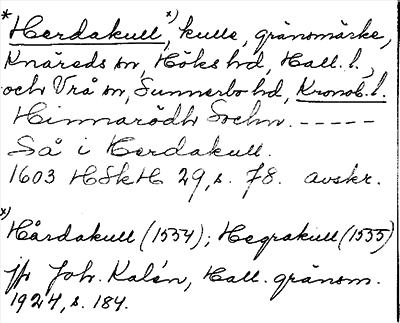 * Herdakull, x) kulle, gränsmärke,
Knäreds sn, Höks hd, Hall. l.,
och Vrå sn, Sunnerbo hd, Kronob. l.
Hinnarödh Sochn. -----
Så i Herdakull.
1603 HSkH 29, s. 78. avskr.
x)
Hårdakull (1554); Hegrakull (1555)
jfr Joh. Kalén, Hall. gränsm.
1924, s. 184.